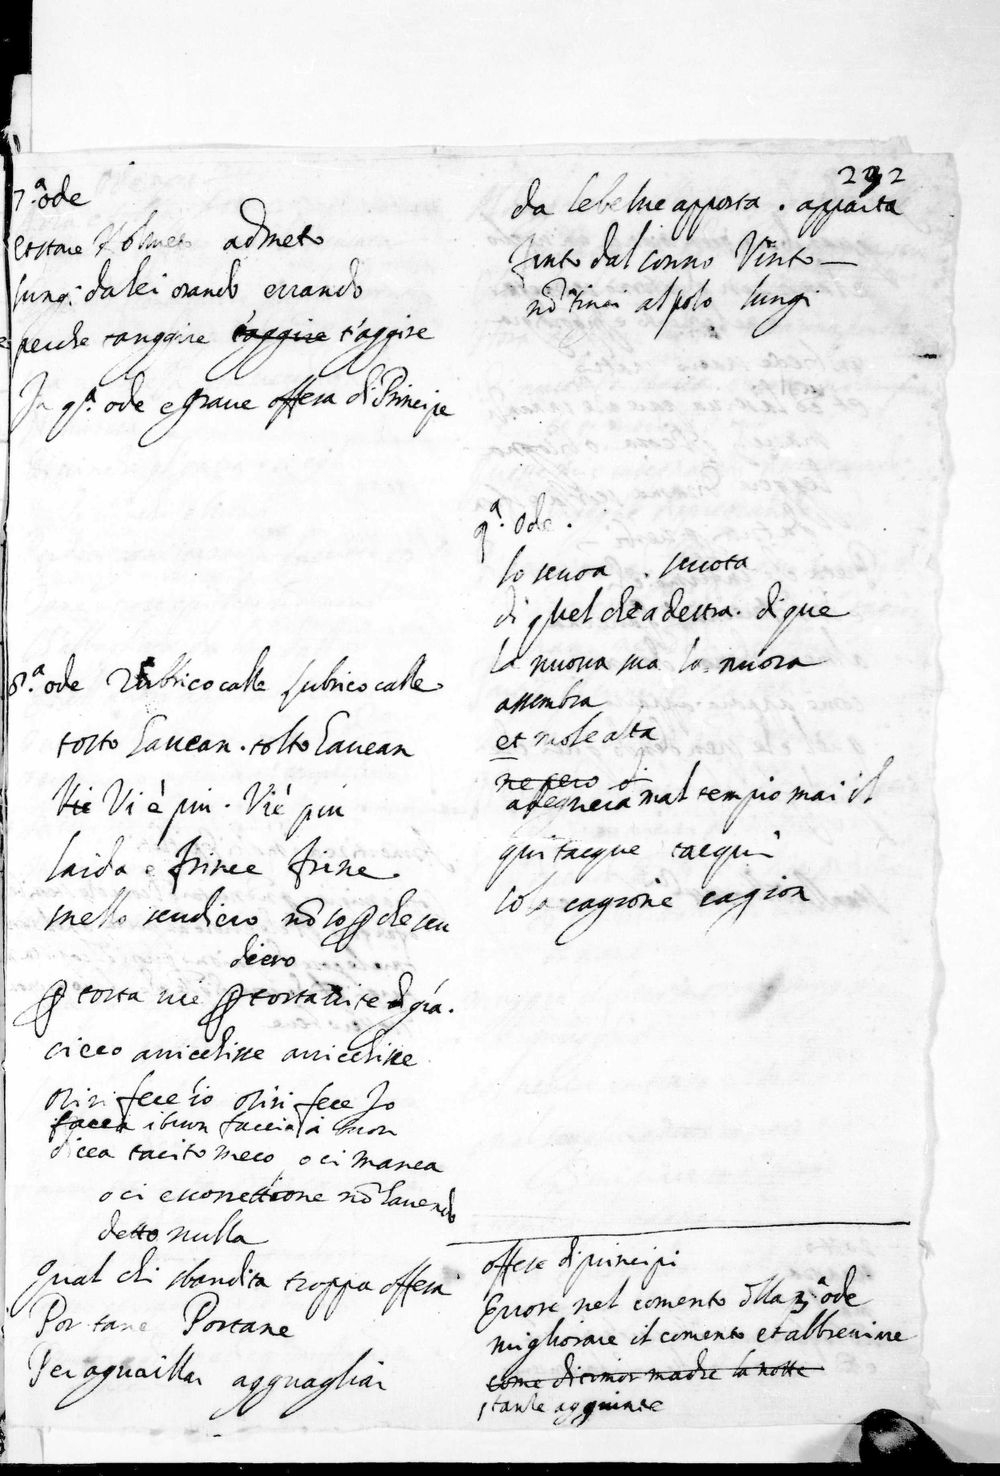 7.ª ode
admeto
lungi da lei orando errando
perche tanggire taggire t'aggire
In q.ª ode e graue offesa di Principe
8.ª ode Rubrico calle lubrico calle
torto hauean . tolto hauean
Vie Vi è piu . Vie piu
laida e frinee frine
mello sendiero nõ so ꝑ che sen
diero
ꝑ torta uie ꝑ torta uite
cieco auicchisse auicchisse
fece io fece Io
facea i buon faccia i buon
dicea tacito meco o ci manca
o ci e scorrettione nõ hauendo
detto nulla
qual chi sbandita troppa offesa
Portane Portane
Per aguaillar agguagliar
292
da lebelue apporta . apparta
finto dal sonno Vinto
al polo lungi
9.ª Ode .
lo scuoa . scuota
di quel che a destra . di que
la nuoua ma la nuora
assembra
et mole alta
ne pero di
mal tempio mai il
qui tacque tacqui
la cagione cagion
offese di principi
Errore nel comento dlla 3.ª ode
migliorare il comento et abbreuiare
come dicimos madre la notte
stanze aggiunte